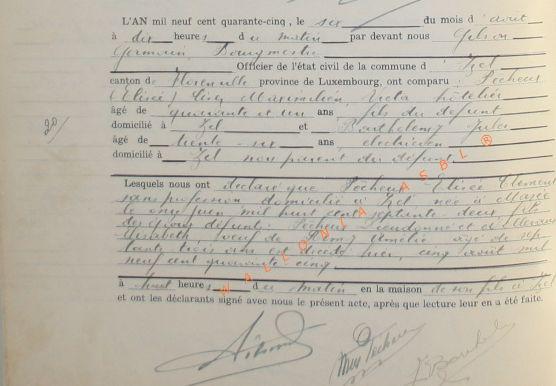 L'AN mil neuf cent quarante-cinq, le six du mois d'août
à dix heures du matin par devant nous Gilson
Germain Bourgmestre
Officier de l'état civil de la commune d'Izel
canton de Florenville province de Luxembourg, ont comparu : Pecheur
Maximilien hôtelier
âgé de quarante et un ans fils du défunt
domicilié à Izel et Barthelemy Jules
âgé de trente-six ans, électricien
domicilié à Izel non parent du défunt
29
Lesquels nous ont déclaré que Pecheur Elisée Clement
sans profession domicilié à Izel née à
le onze juin mil huit cent septante-deux fils
des époux défunts : Pecheur Dieudonné et
Elisabeth veuf de Amélie âgé de sep
tante trois ans est décédé hier, cinq août mil
neuf cent quarante cinq
à huit heures du matin en la maison de son fils à Izel
et ont les déclarants signé avec nous le présent acte, après que lecture leur en a été faite.
WALLONIA ASBL ®